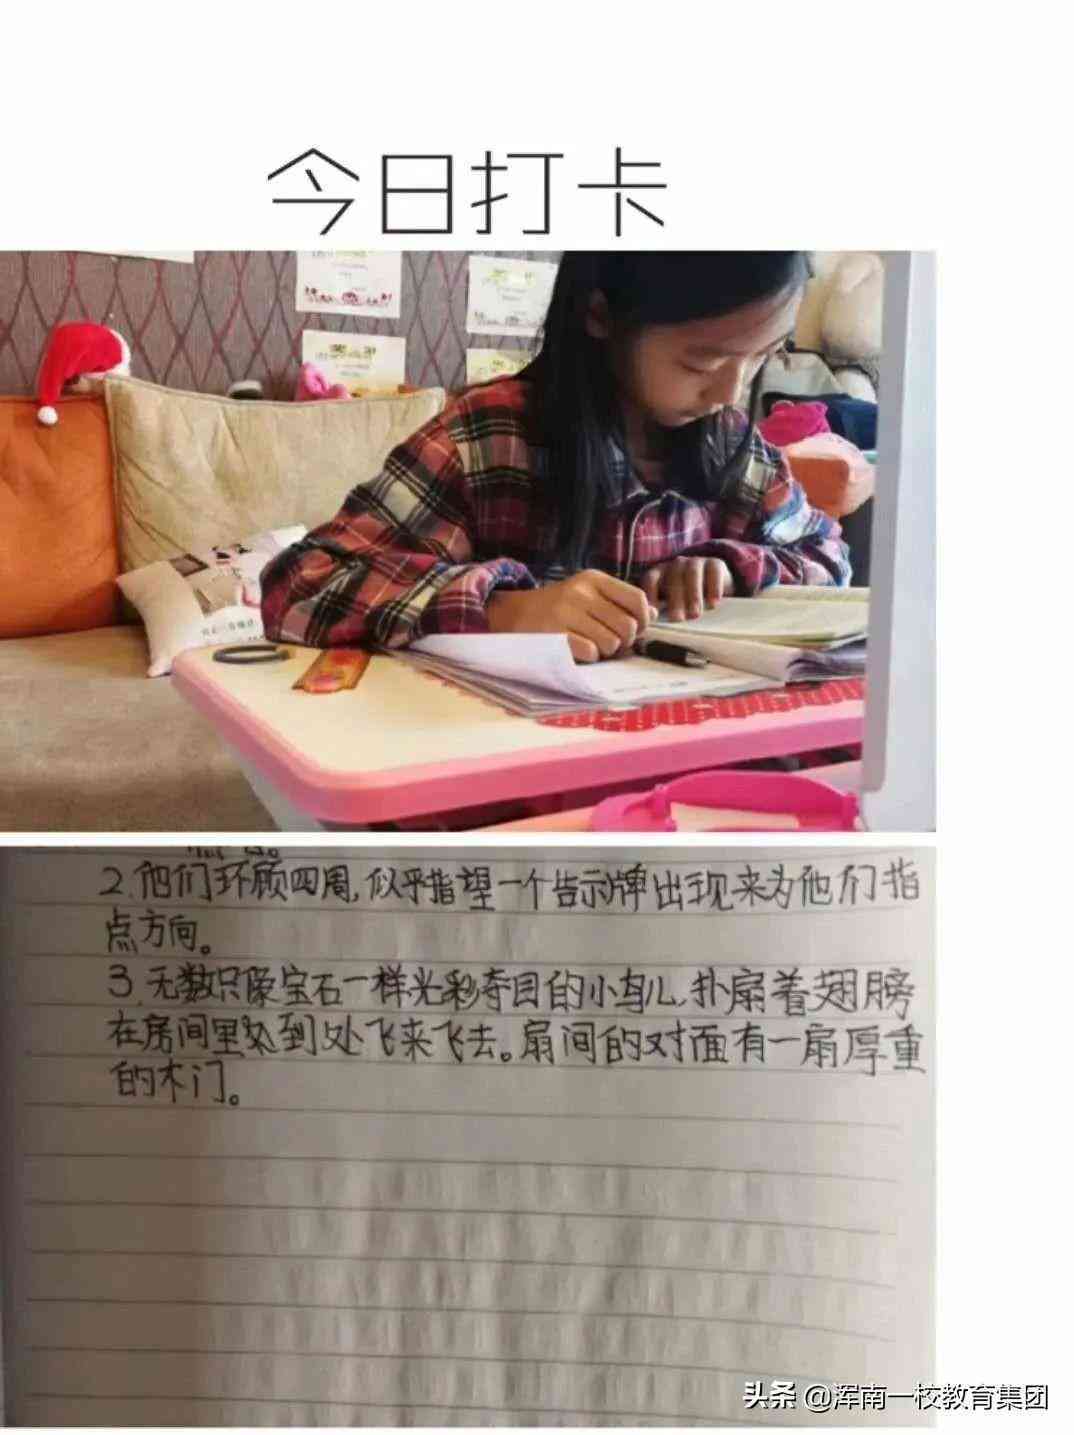 今日打卡
2.他们环顾四周,似乎指望一个告示牌出现来为他们指
点方向。
3.无数只像宝石一样光彩夺目的小鸟儿,扑扇着翅膀
在房间里到处飞来飞去。扇间的对面有一扇厚重
的木门。
头条 @浑南一校教育集团